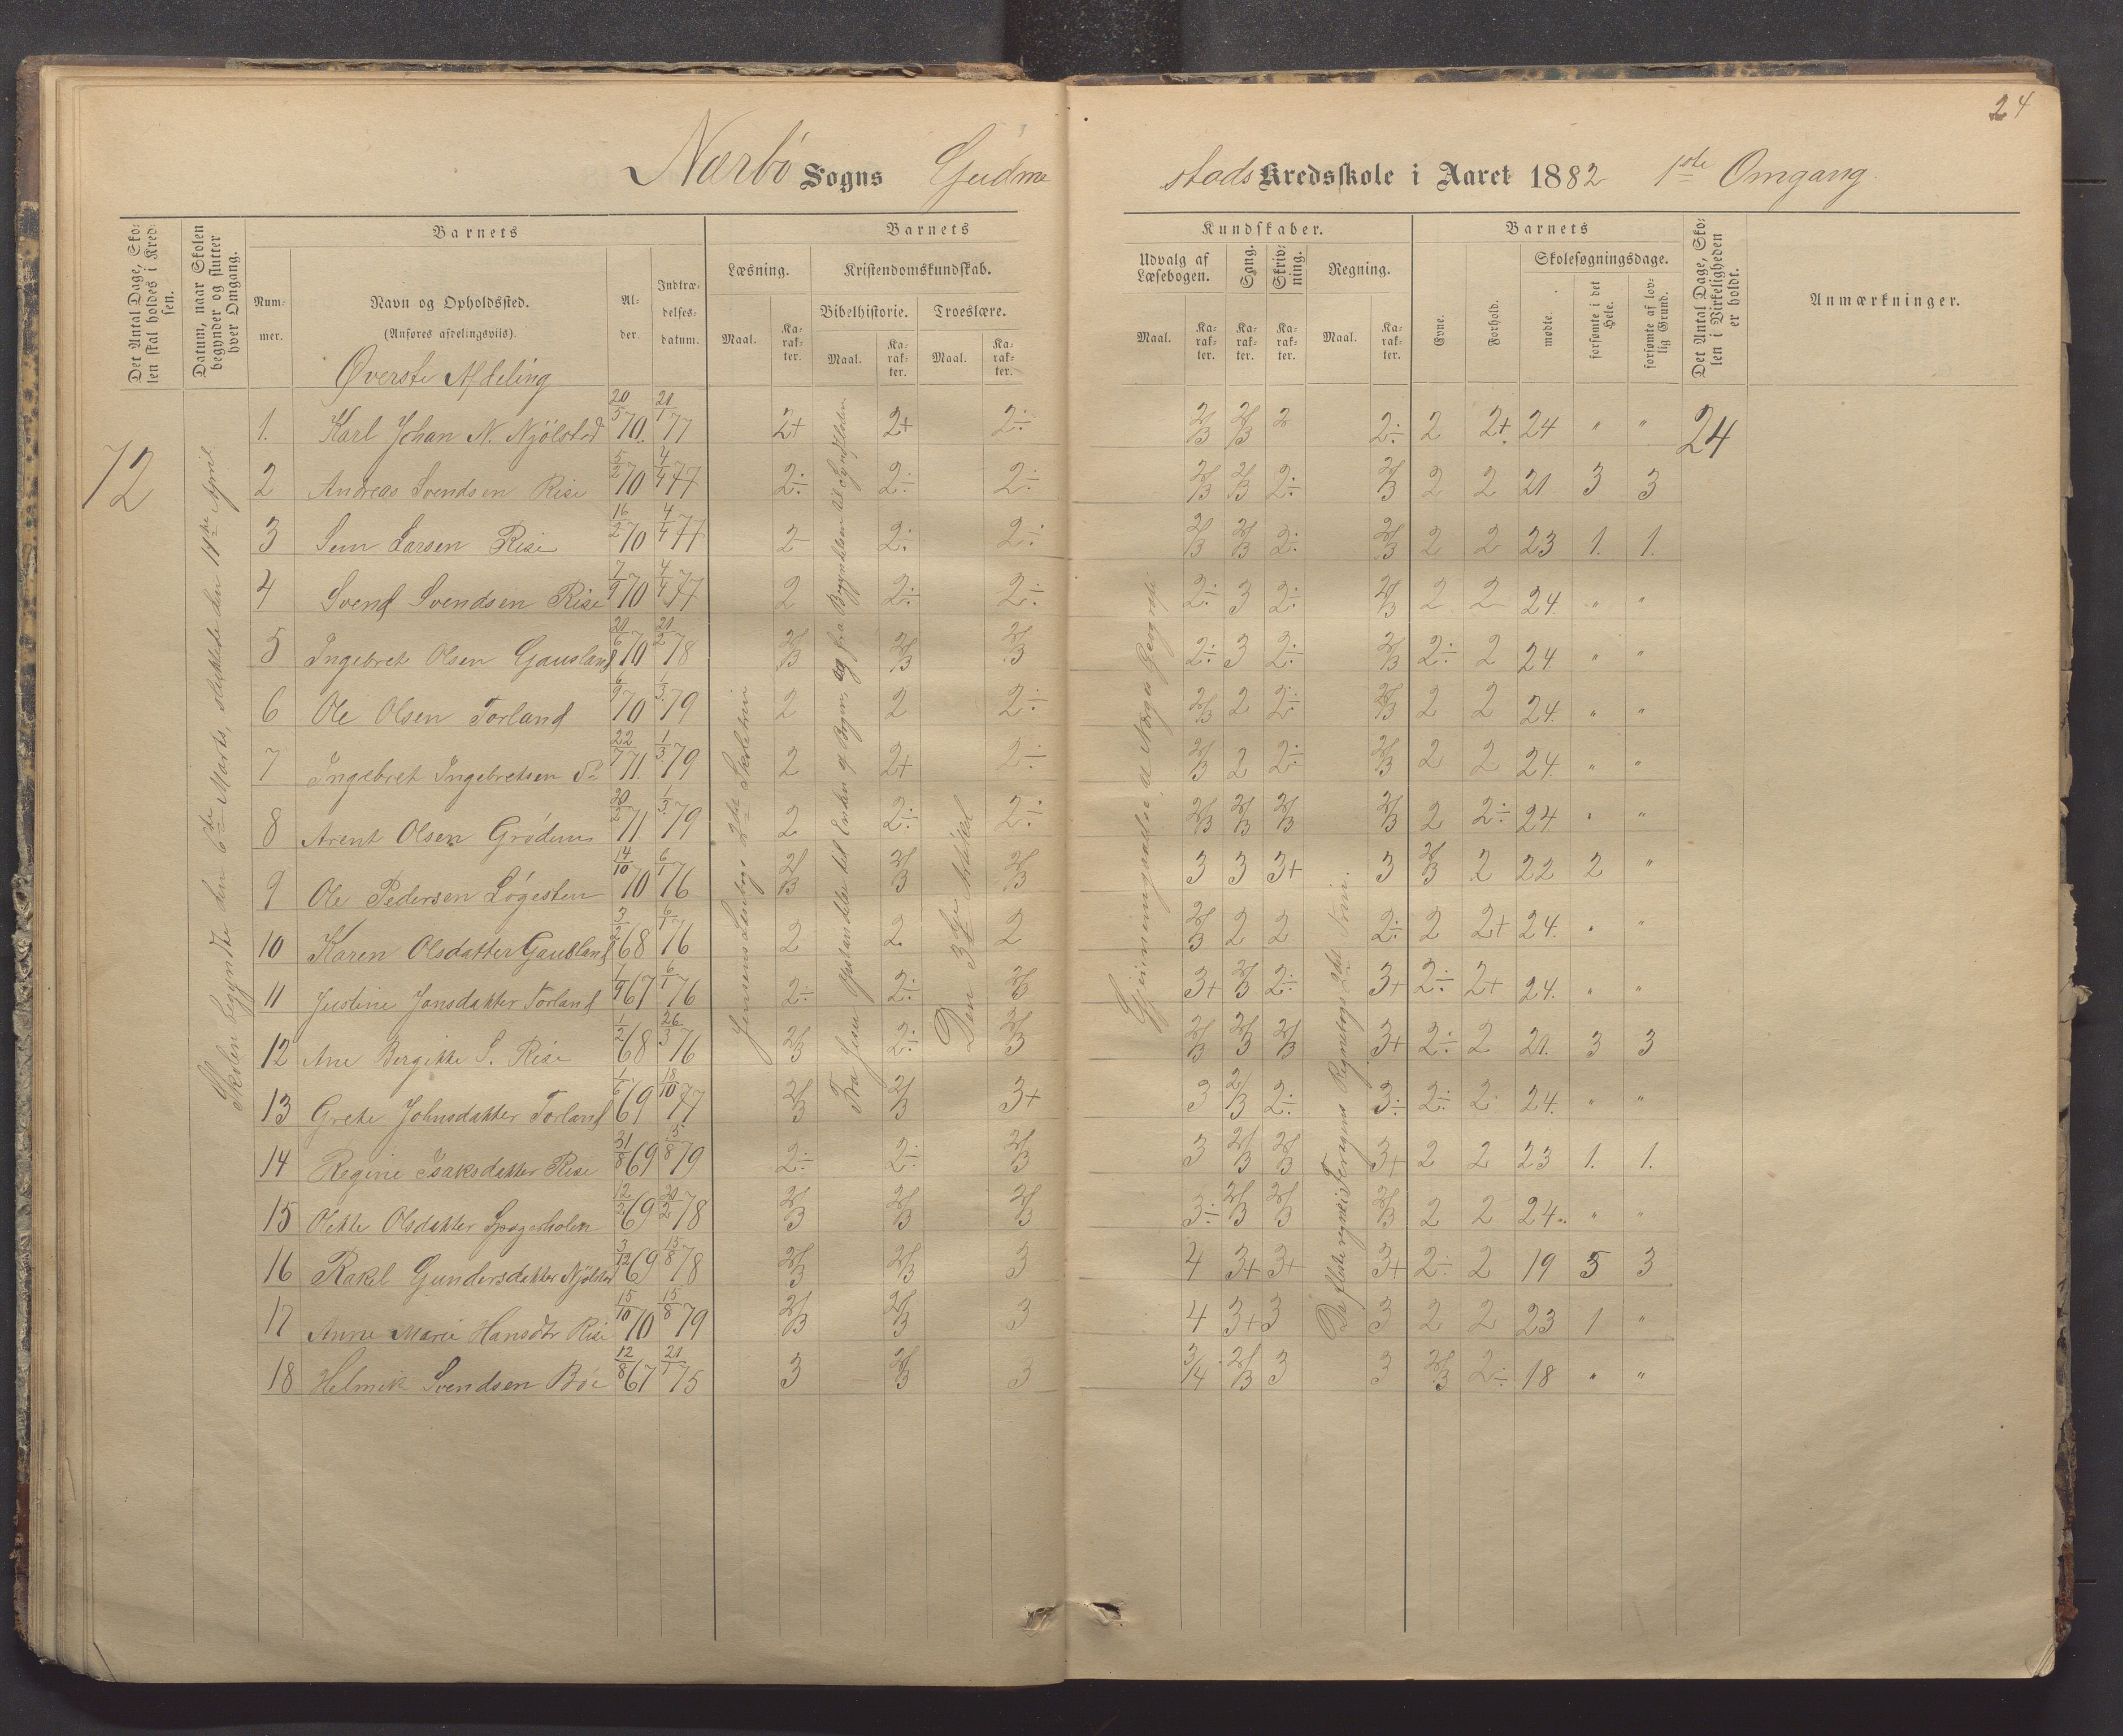 24
Nærbø Sogns Gudme
stads Kredsskole i Aaret 1882 1ste Omgang.
Det Antal Dage, Skolen skal holdes i Kredsen.
Datum, naar Skolen begynder og slutter hver Omgang.
Barnets
Nummer.
Navn og Opholdssted.
(Anføres afdelingsviis).
Alder.
Indtrædelsesdatum.
Barnets
Læsning.
Maal.
Karakter.
Kristendomskundskab.
Bibelhistorie.
Maal.
Karakter.
Troeslære.
Maal.
Karakter.
Kundskaber.
Udvalg af Læsebogen.
Maal.
Karakter.
Sang.
Karakter.
Skrivning.
Karakter.
Regning.
Maal.
Karakter.
Barnets
Evne.
Forhold.
Skolesøgningsdage.
mødte.
forsømte i det Hele.
forsømte af lovlig Grund.
Det Antal Dage, Skolen i Virkeligheden er holdt.
Anmærkninger.
Øverste Afdeling
72
Skolen begyndte den 6te Marts, sluttede den 11te April
24
1. Karl Johan N. Njølstad 20/5 70. 21/1 77 2+ 2+ 2÷ 2/3 2/3 2 2÷ 2 2+ 24 " "
2 Andreas Svendsen Rise 5/2 70 4/4 77 2÷ 2÷ 2÷ 2/3 2/3 2÷ 2/3 2 2 21 3 3
3 Sem Larsen Rise 16/2 70 4/4 77 2 2÷ 2÷ 2/3 2/3 2÷ 2/3 2 2 23 1. 1.
4 Svend Svendsen Rise 7/9 70 4/4 77 2 2÷ 2÷ 2÷ 3 2÷ 2/3 2 2 24 " "
5 Ingebret Olsen Gausland 21/6 70 21/2 78 2/3 2/3 2/3 2÷ 3 2÷ 2/3 2÷ 2 24. " "
6 Ole Olsen Torland 6/9 70 1/3 79 2 2 2÷ 2/3 2 2÷ 2/3 2 2 24. " "
7 Ingebret Ingebretsen 22/7 71. 1/3 79 2 2+ 2÷ 2/3 2 2÷ 2/3 2 2 24. " "
8 Arent Olsen Grødem 71. 1/3 79 2 2÷ 2÷ 2/3 2/3 2/3 2/3 2 2÷ 24 " "
9 Ole Pedersen Løgesten 14/10 70 6/1 76 2/3 2/3 2/3 3 3 3+ 3 2/3 2 22 2 "
10 Karen Olsdatter Gausland 3/2 68 6/1 76 2 2 2 2/3 2 2 2÷ 2 2+ 24. " "
11 Justine Jonsdatter Torland 67 6/1 76 2÷ 2÷ 2/3 3+ 2/3 2÷ 3+ 2÷ 2+ 24. " "
12 Ane Bergitte S. Rise 1/2 68 26/3 76 2/3 2÷ 2/3 2/3 2/3 2/3 3+ 2÷ 2 21. 3 3
13 Grete Johnsdatter Torland 1/6 69 18/10 77 2/3 2/3 3+ 3 2/3 2÷ 3÷ 2÷ 2 24. " "
14 Regine Isaksdatter Rise 31/8 69 15/8 79 2÷ 2÷ 2/3 3 2/3 2/3 3+ 2 2 23 1. 1.
15 Olette Olsdatter 69 20/2 78 2/3 2/3 2/3 3÷ 2/3 2/3 2/3 2 2 24. " "
16 Rakel Gundersdatter Njølstad 3/12 69 15/8 78 2/3 2/3 3 4 3+ 3+ 3+ 2÷ 2 19 5 3
17 Anne Marie Hansdtr Rise 15/10 70 15/8 79 2/3 2/3 3 4 3+ 3 3 2 2 23 1 "
18 Helmik Svendsen Bøe 12/8 67 21/1 75 3 2/3 3 3/4 2/3 3 3 2/3 2÷ 18 " "
Jensens Læsebogs 2det Skoletrin
Fra Jesu Opstandelse til Enden af Bogen, og fra Begyndelsen til Syndfloden
Den 3die Artikel
Gjennemgaaelse af Norges Geografi
De fleste regne i Feragens Regnebogs 2det Trin.